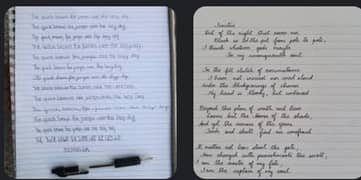 The quick brown fox jumps over the lazy dog.
The quick brown fox jumps over the lazy dog.
The quick brown fox jumps over the lazy dog.
The quick brown fox jumps over the lazy dog
The quick brown fox jumps over the lazy dog
The quick brown fox jumps over the lazy dog
The quick brown fox jumps over the lazy dog
The quick brown fox jumps over the lazy dog
The quick brown fox jumps over the lazy dog
The quick brown fox jumps over the lazy dog
The quick brown fox jumps over the lazy dog
The quick brown fox jumps over the lazy dog
Invictus
Out of the night that covers me
Black as the pit from pole to pole,
I thank whatever gods maybe
For my unconquerable soul
In the fell clutch of circumstance
I have not winced nor cried aloud
Under the bludgeonings of chance
My head is bloody, but unbowed
Beyond this place of wrath and tears
Looms but the Horror of the shade,
And yet the menace of the years
Finds and shall find me unafraid
It matters not how strait the gate,
How charged with punishments the scroll,
I am the master of my fate,
I am the captain of my soul.